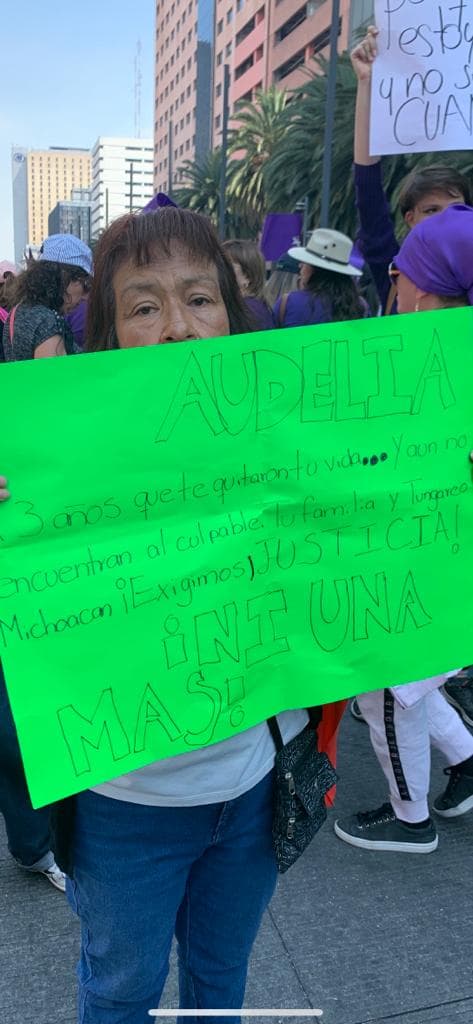 AUDELIA
A 3 años que te quitaron tu vida... Y aun no
encuentran al culpable. Tu familia y Tungareo
Michoacan ¡Exigimos JUSTICIA!
¡NI UNA
MAS!
estoy
y no s
CUA